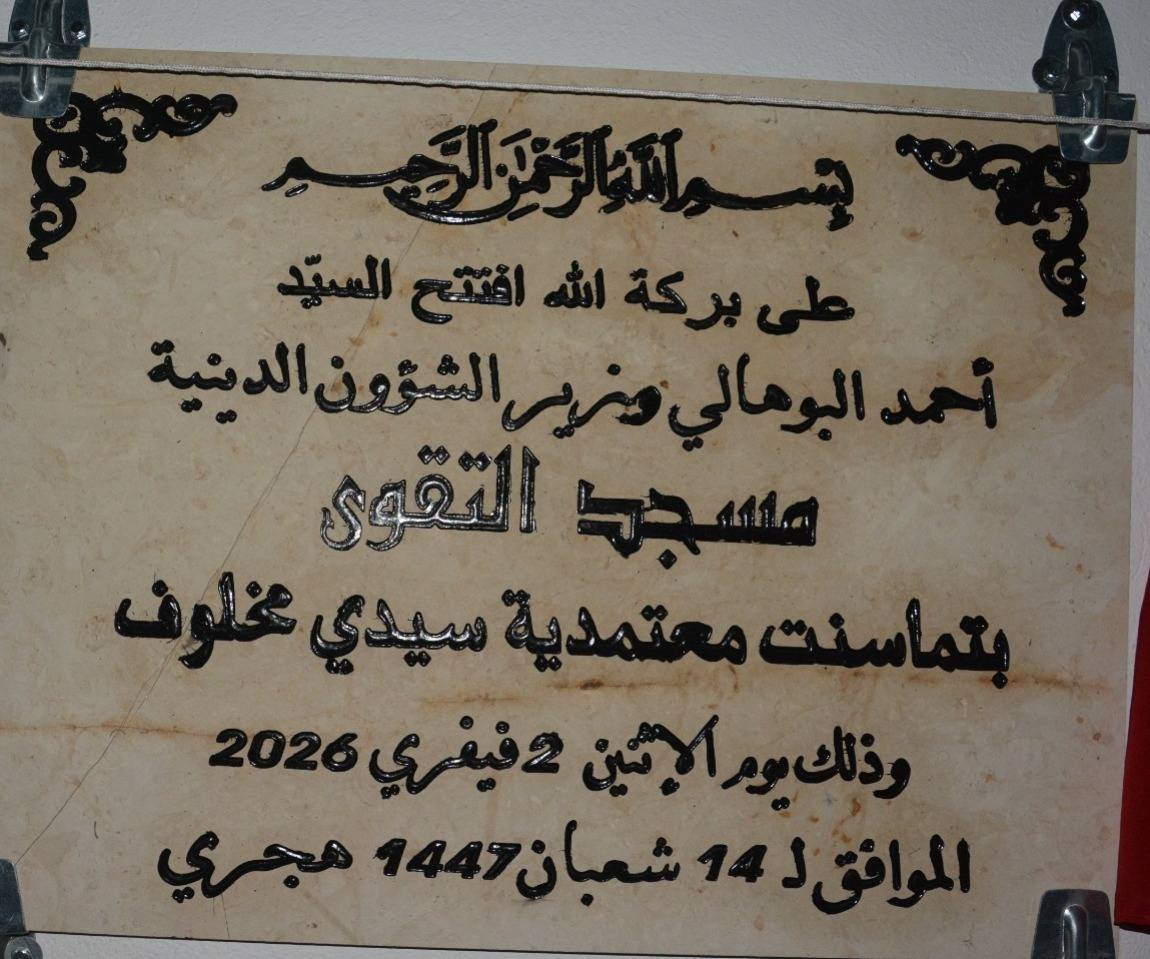 بسم الله الرحمن الرحيم
على بركة الله افتتح السيّد
أحمد البوهالي وزير الشؤون الدينية
مسجد التقوى
بتماسنت معتمدية سيدي مخلوف
وذلك يوم الإثنين 2 فيفري 2026
الموافق لـ 14 شعبان 1447 هجري